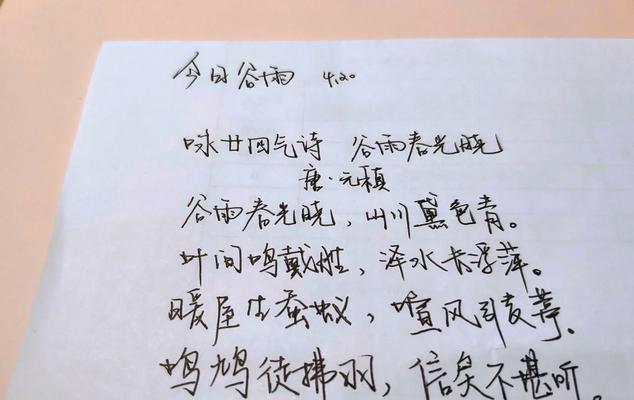 今日谷雨 4.20
咏廿四气诗 谷雨春光晓
唐·元稹
谷雨春光晓，山川黛色青。
叶间鸣戴胜，泽水长浮萍。
暖屋生蚕蚁，喧风引麦葶。
鸣鸠徒拂羽，信矣不堪听。